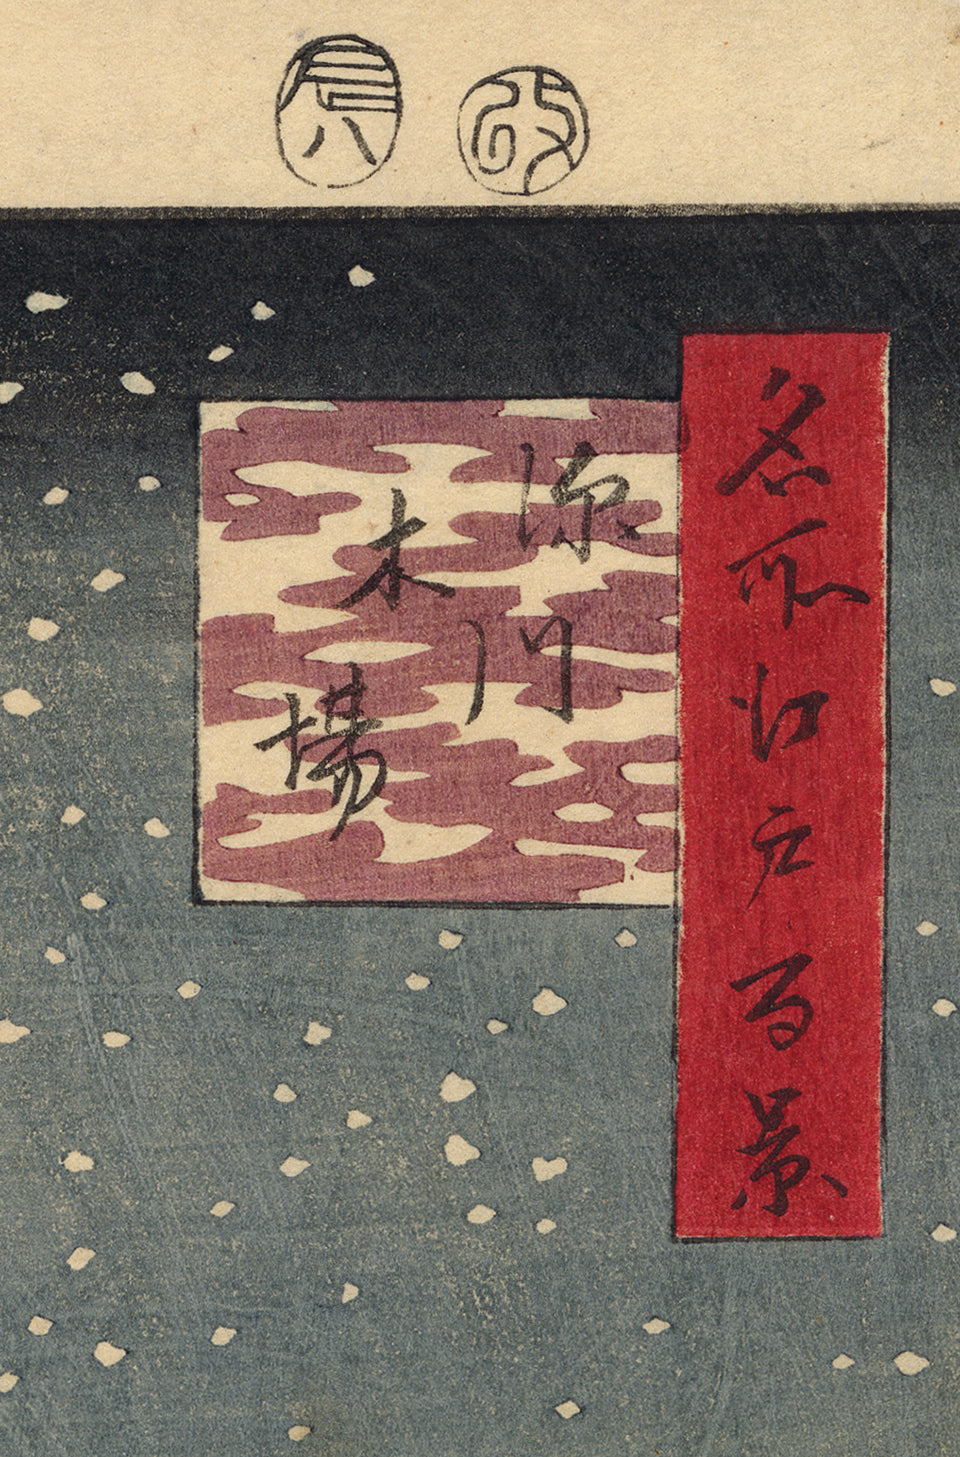 改
辰八
名所江戸百景
深川
木場